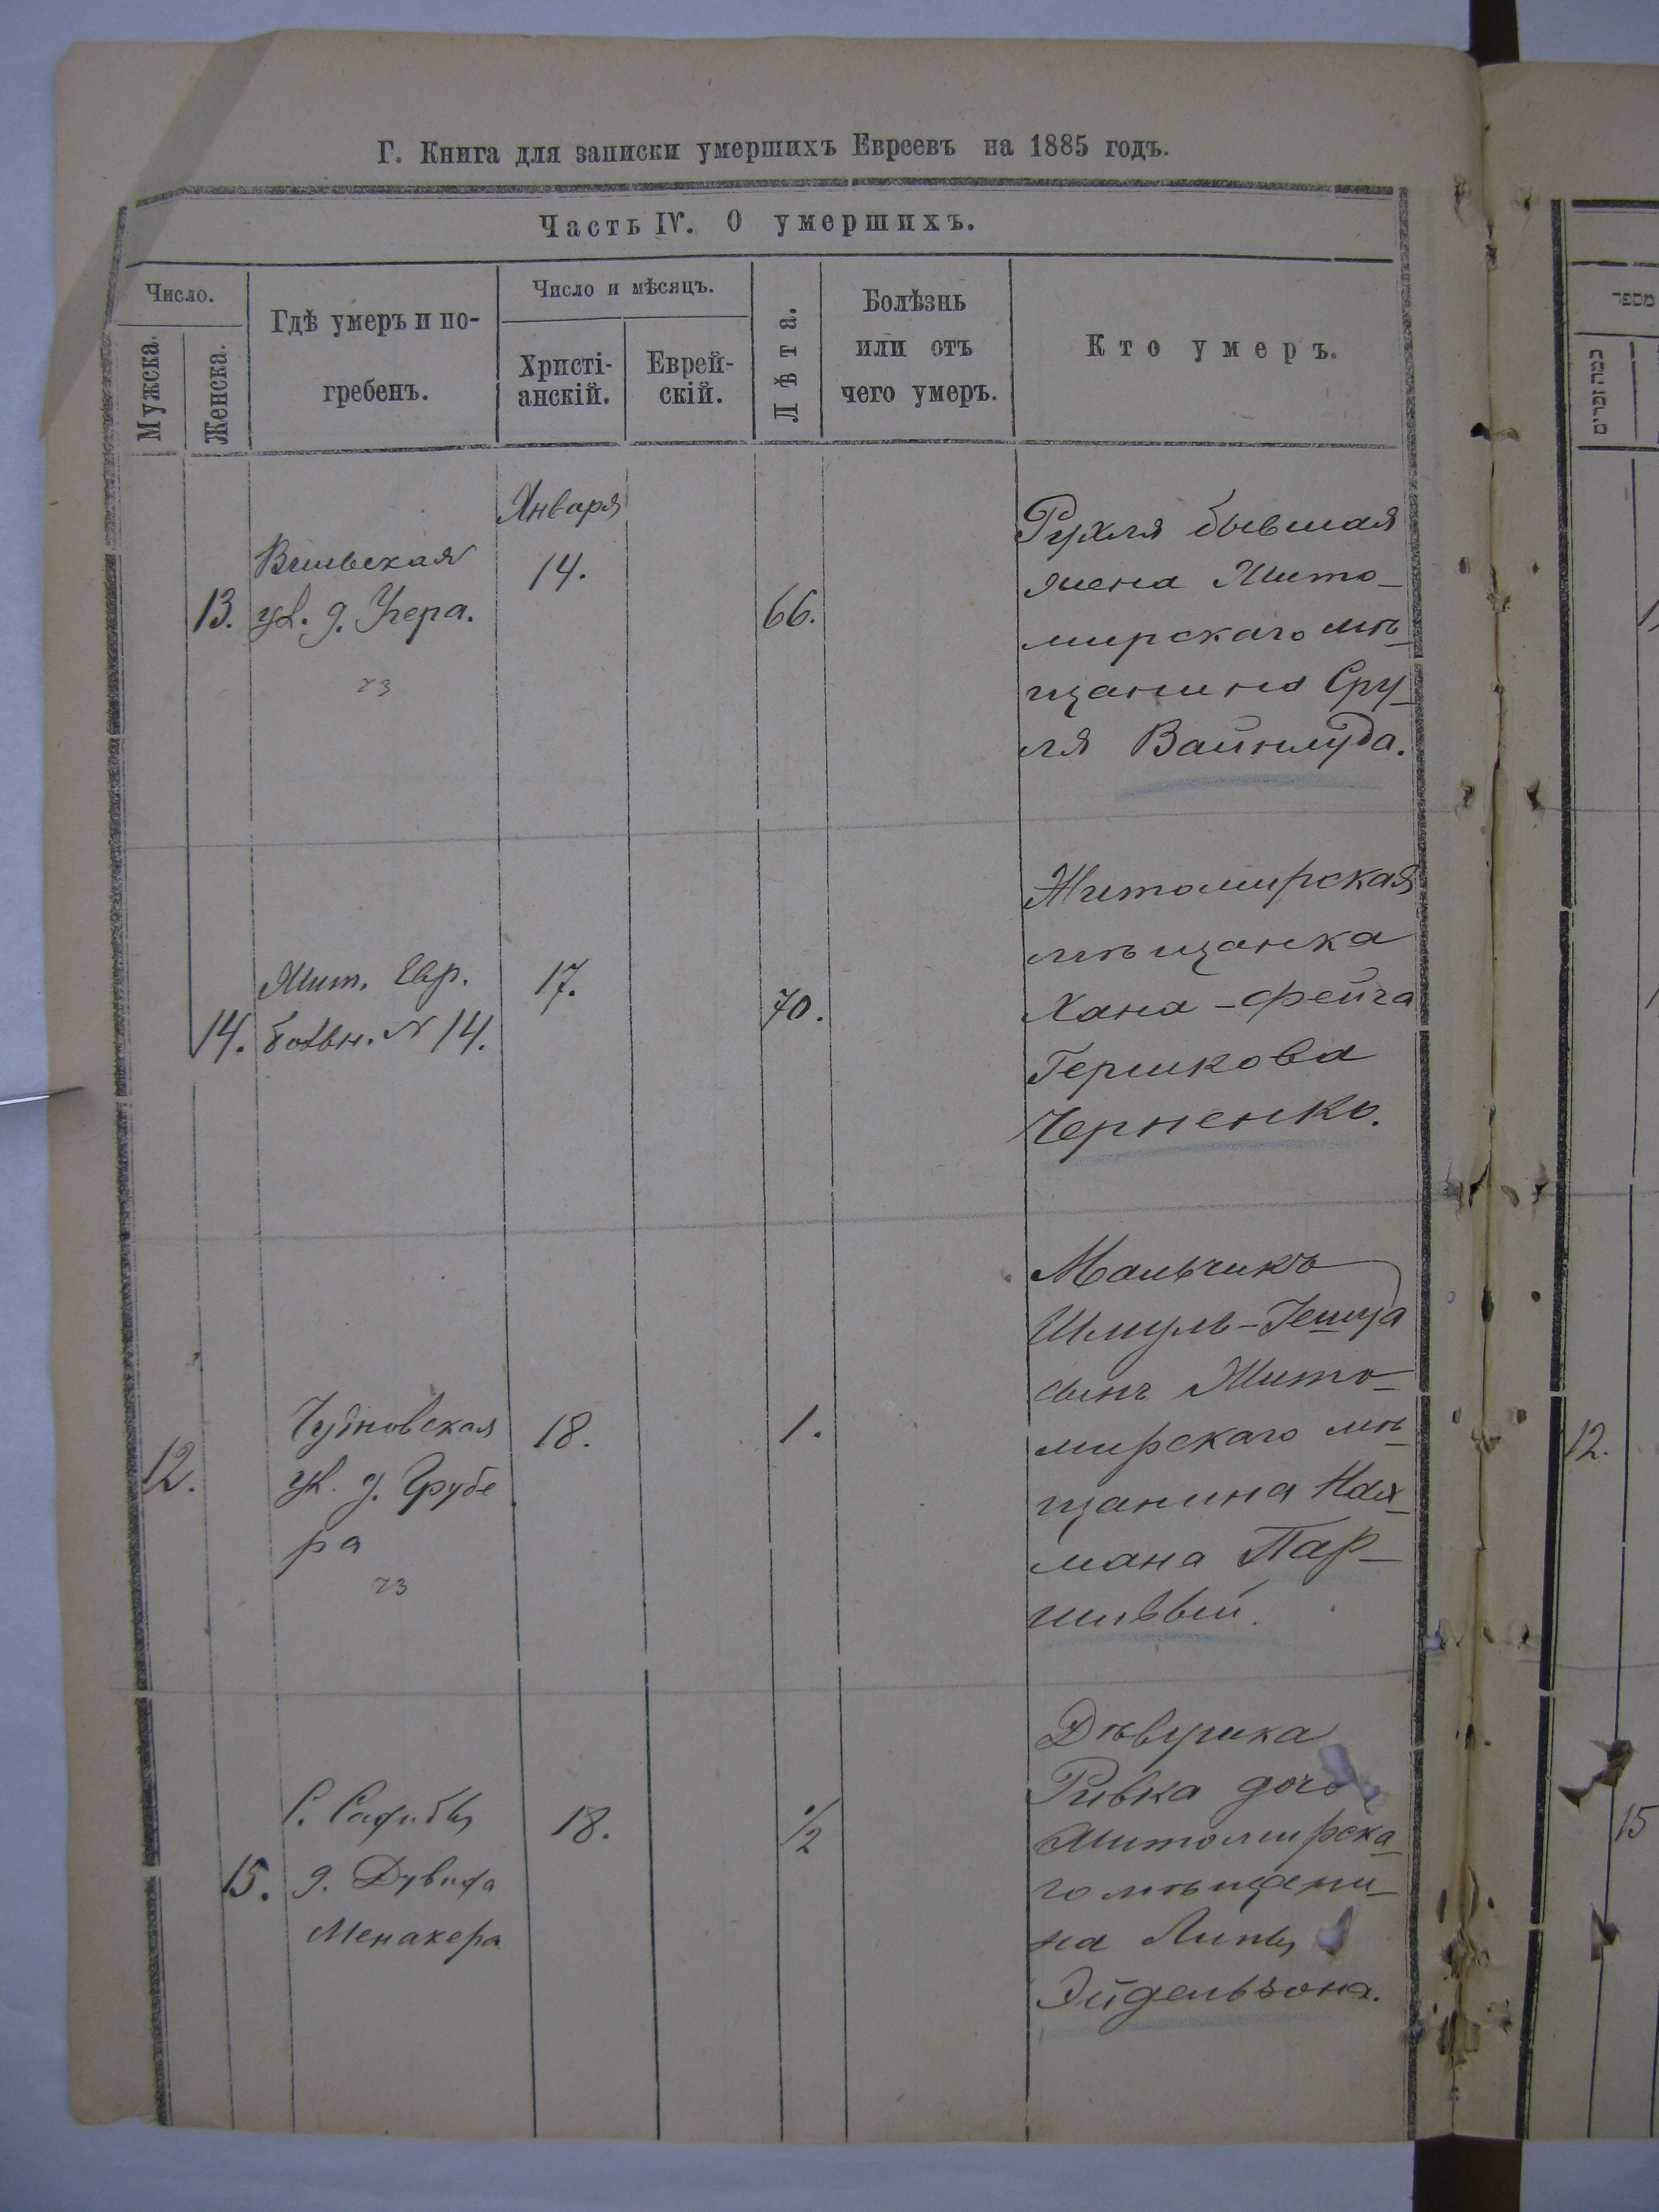 Г. Книга для записки умершихъ Евреевъ на 1885 годъ.
Часть IV. О умершихъ.
Число.
Мужска.
Женска.
Гдѣ умеръ и по-
гребенъ.
Число и мѣсяцъ.
Христі-
анскій.
Еврей-
скій.
Лѣта.
Болѣзнь
или отъ
чего умеръ.
Кто умеръ.
13.
Вильская
ул. д.
Января
14.
66.
Рухля бывшая
жена Жито-
мирскаго мѣ-
щанина Сру-
ля
14.
Жит. Евр.
больн. N 14.
17.
70.
Житомирская
мѣщанка
Хана-Фейга
Гершкова
Черненко.
12.
Чудновская
ул. д. Грубе
ра
18.
1.
Мальчикъ
Шмуль-Іешуа
сынъ Жито-
мирскаго мѣ-
щанина Нах-
мана Пар-
шивый.
15.
С.
д. Дувида
Менакера
18.
1/2
Дѣвушка
Ривка дочь
Житомирска-
го мѣщани-
на Липы
Эйдельзона.
מספר
12.
15